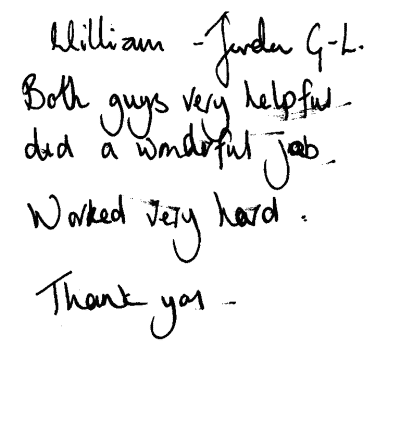 William - Jordan G-L.
Both guys very helpful -
did a wonderful job.
Worked very hard.
Thank you -